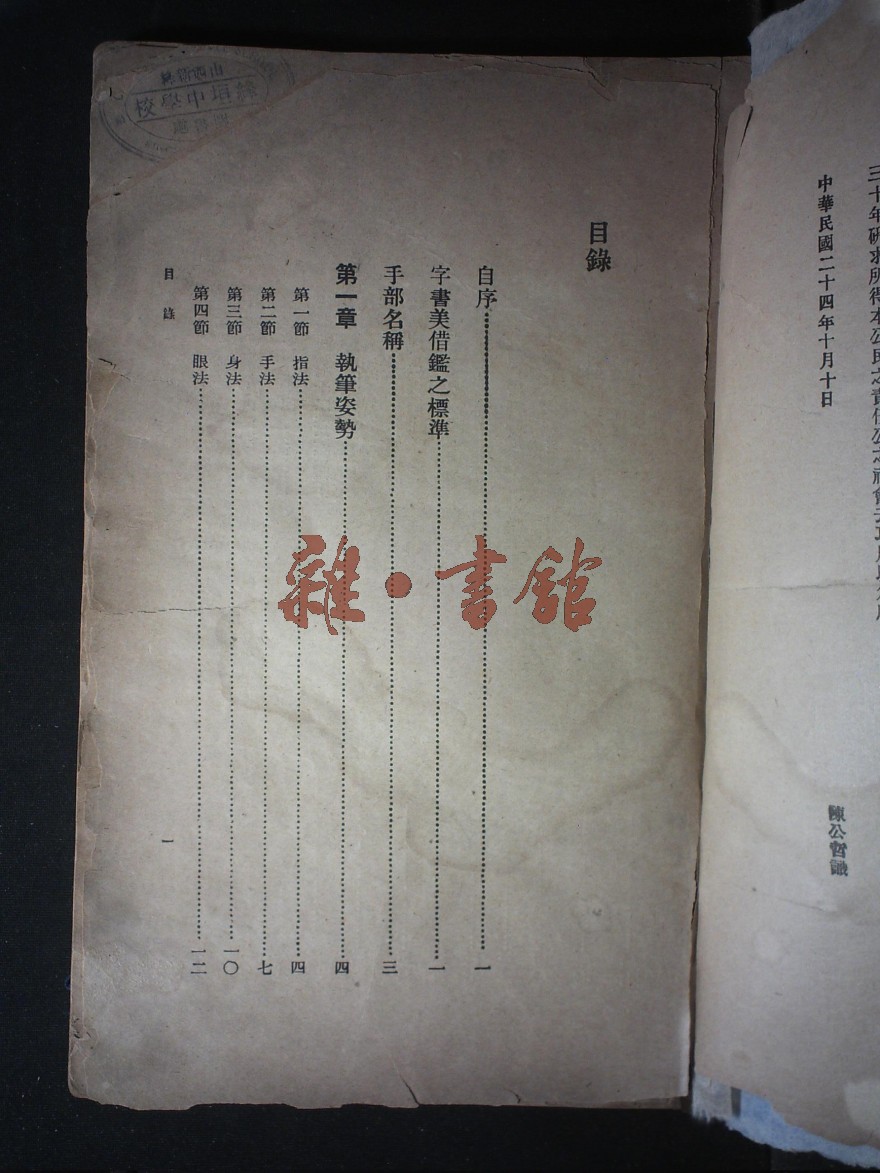 三十年研求所得本公民之責任公之社會
中華民國二十四年十月十日
陳公哲識
目錄
自序……一
字書美借鑑之標準……一
手部名稱……三
第一章 執筆姿勢……四
第一節 指法……四
第二節 手法……七
第三節 身法……一〇
第四節 眼法……一二
目錄
一
中學校
雜·書館